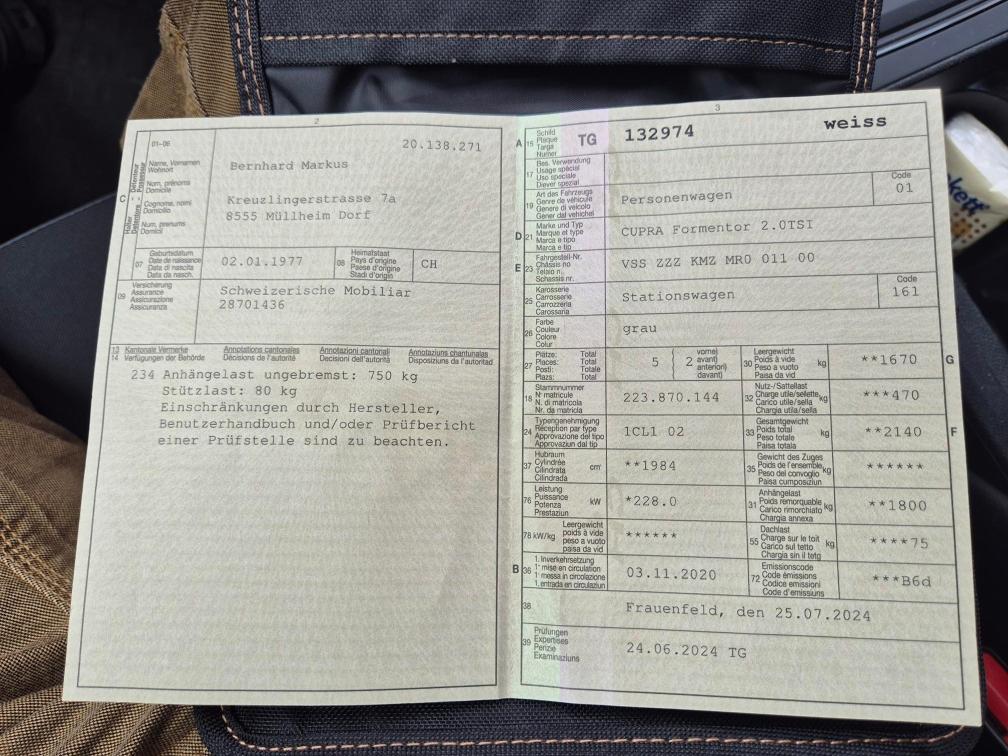 2
20.138.271
01-06
C
Halter Détenteur
Detentore Possessur
Name, Vornamen
Wohnort
Num, prénoms
Domicile
Cognome, nomi
Domicilio
Num, prenums
Domicil
Bernhard Markus
Kreuzlingerstrasse 7a
8555 Müllheim Dorf
07
Geburtsdatum
Date de naissance
Data di nascita
Data da nasch.
02.01.1977
08
Heimatstaat
Pays d'origine
Paese d'origine
Stadi d'origin
CH
09
Versicherung
Assurance
Assicurazione
Assicuranza
Schweizerische Mobiliar
28701436
13 Kantonale Vermerke Annotations cantonales Annotazioni cantonali Annotaziuns chantunalas
14 Verfügungen der Behörde Décisions de l'autorité Decisioni dell'autorità Disposiziuns da l'autoritad
234 Anhängelast ungebremst: 750 kg
Stützlast: 80 kg
Einschränkungen durch Hersteller,
Benutzerhandbuch und/oder Prüfbericht
einer Prüfstelle sind zu beachten.
3
A 15
Schild
Plaque
Targa
Numer
TG 132974 weiss
17
Bes. Verwendung
Usage spécial
Uso speciale
Diever spezial
19
Art des Fahrzeugs
Genre de véhicule
Genere di veicolo
Gener dal vehichel
Personenwagen
Code
01
D 21
Marke und Typ
Marque et type
Marca e tipo
Marca e tip
CUPRA Formentor 2.0TSI
E 23
Fahrgestell-Nr.
Châssis no
Telaio n.
Schassis nr.
VSS ZZZ KMZ MR0 011 00
25
Karosserie
Carrosserie
Carrozzeria
Carossaria
Stationswagen
Code
161
26
Farbe
Couleur
Colore
Colur
grau
27
Plätze: Total
Places: Total
Posti: Totale
Plazs: Total
5 { 2
vorne)
avant)
anteriori)
davant)
30
Leergewicht
Poids à vide
Peso a vuoto
Paisa da vid
kg
**1670
G
18
Stammnummer
N° matricule
N. di matricola
Nr. da matricla
223.870.144
32
Nutz-/Sattellast
Charge utile/sellette
Carico utile/sella
Chargia utila/sella
kg
***470
24
Typengenehmigung
Réception par type
Approvazione del tipo
Approvaziun dal tip
1CL1 02
33
Gesamtgewicht
Poids total
Peso totale
Paisa totala
kg
**2140
F
37
Hubraum
Cylindrée
Cilindrata
Cilindrada
cm³
**1984
35
Gewicht des Zuges
Poids de l'ensemble
Peso del convoglio
Paisa cumposiziun
kg
******
76
Leistung
Puissance
Potenza
Prestaziun
kW
*228.0
31
Anhängelast
Poids remorquable
Carico rimorchiato
Chargia annexa
kg
**1800
78 kW/kg
Leergewicht
poids à vide
peso a vuoto
paisa da vid
******
55
Dachlast
Charge sur le toit
Carico sul tetto
Chargia sin il tetg
kg
****75
B 36
1. Inverkehrsetzung
1re mise en circulation
1a messa in circolazione
1. entrada en circulaziun
03.11.2020
72
Emissionscode
Code émissions
Codice emissioni
Code d'emissiuns
***B6d
38
Frauenfeld, den 25.07.2024
39
Prüfungen
Expertises
Perizie
Examinaziuns
24.06.2024 TG